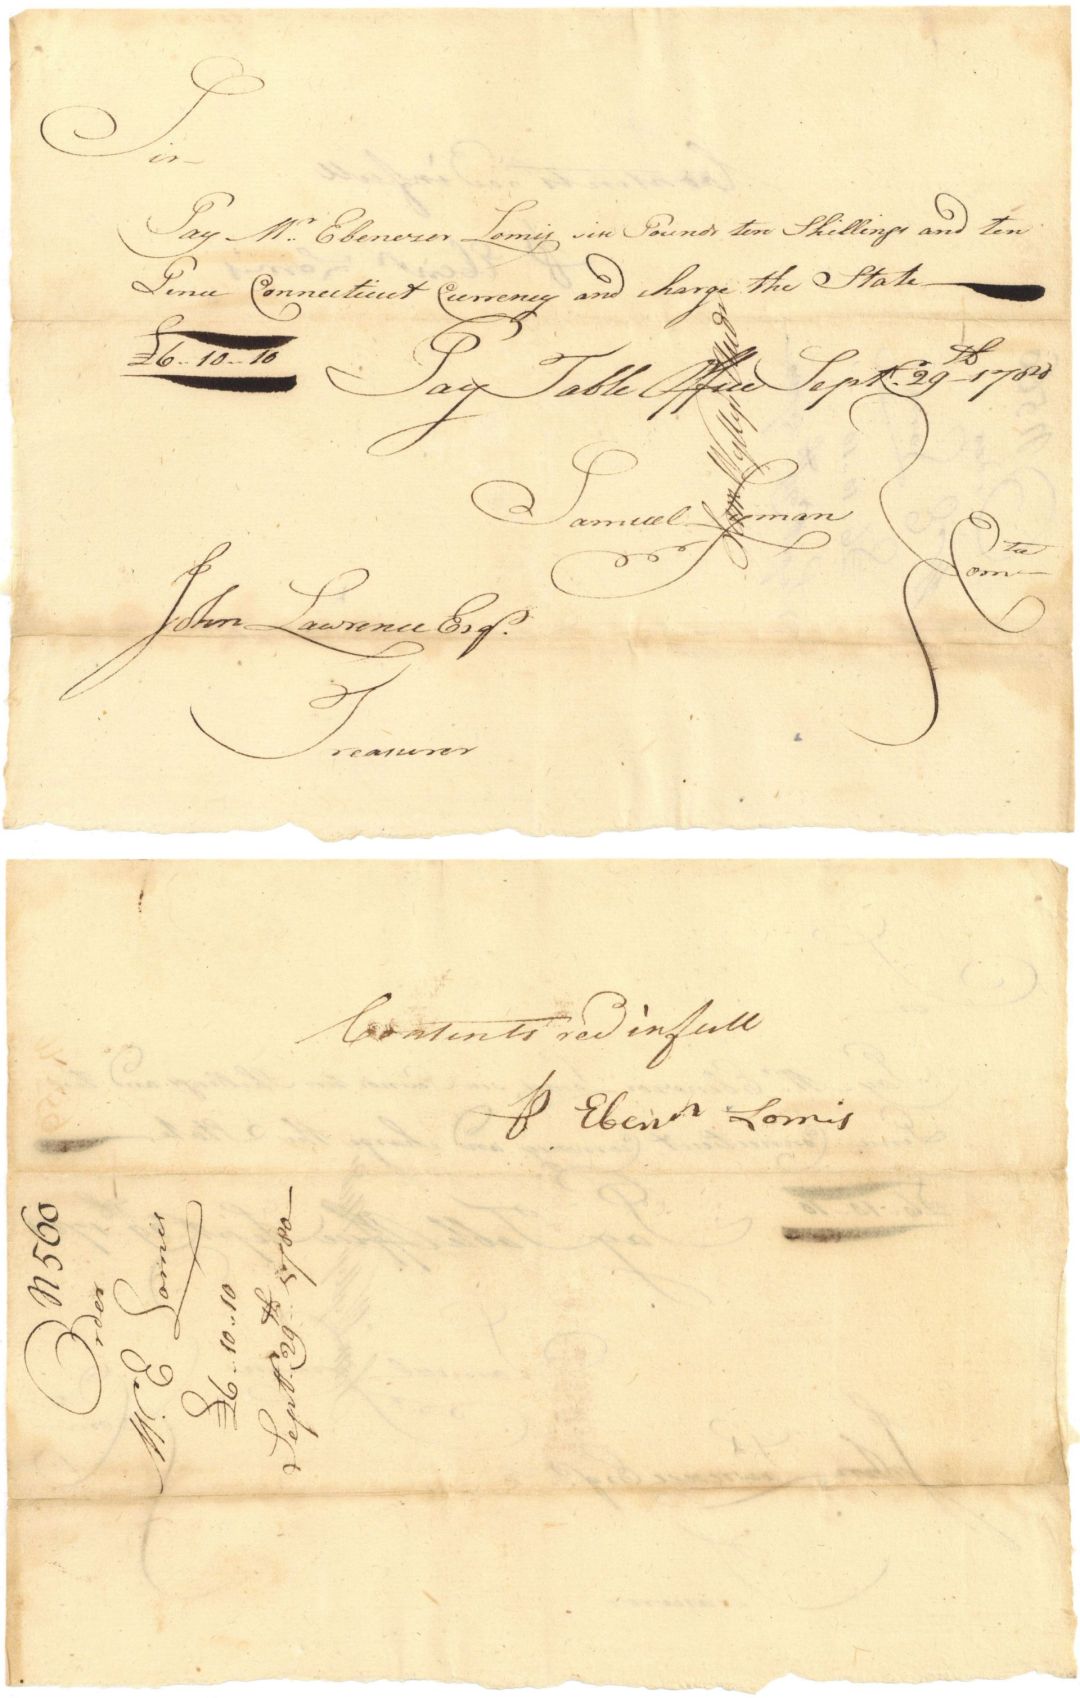 Sir
Pay Mr. Ebenezer Lomis six Pounds ten Shillings and ten
Pence Connecticut Currency and charge the State
£6-10-10
Pay Table Office Septr. 29th 1780
Samuel Lyman
Comtee
John Lawrence Esqr.
Treasurer
Contents recd in full
Ebenr Lomis
N 560
Order
Mr. E Lomis
£6-10-10
Sept. 29th 1780